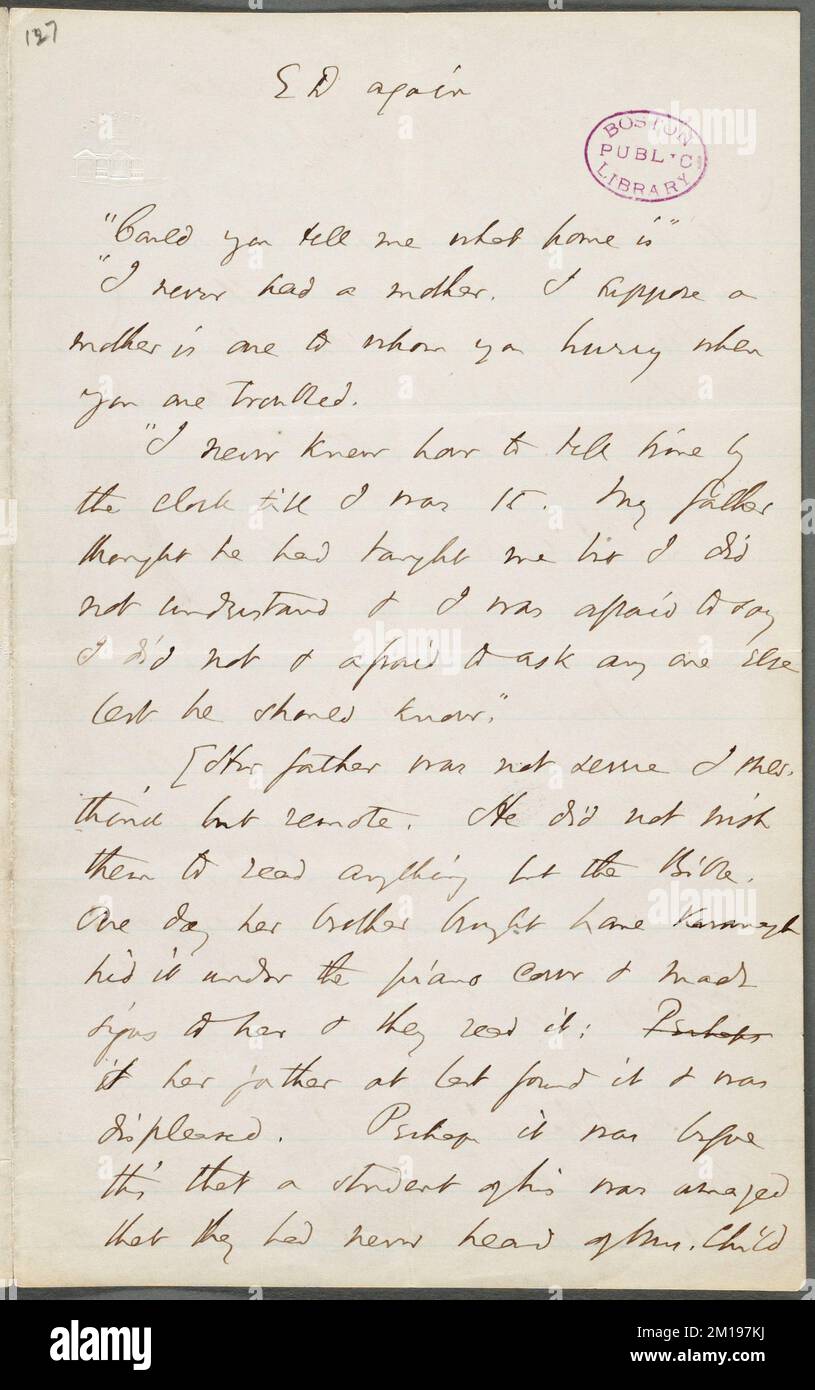 127
E D again
BOSTON
PUBLIC
LIBRARY
"Could you tell me what home is"
"I never had a mother. I suppose a
mother is one to whom you hurry when
you are troubled.
"I never knew how to tell time by
the clock till I was 15. My father
thought he had taught me but I did
not understand & I was afraid to say
I did not & afraid to ask any one else
lest he should know."
[Her father was not severe I should
think but remote. He did not wish
them to read anything but the Bible.
One day her brother brought home Kavanagh
hid it under the piano cover & made
signs to her & they read it: Perhaps
it her father at last found it & was
displeased. Perhaps it was before
this that a student of his was amazed
that they had never heard of Mrs. Child
alamy
alamy
Image ID: 2M197KJ
www.alamy.com